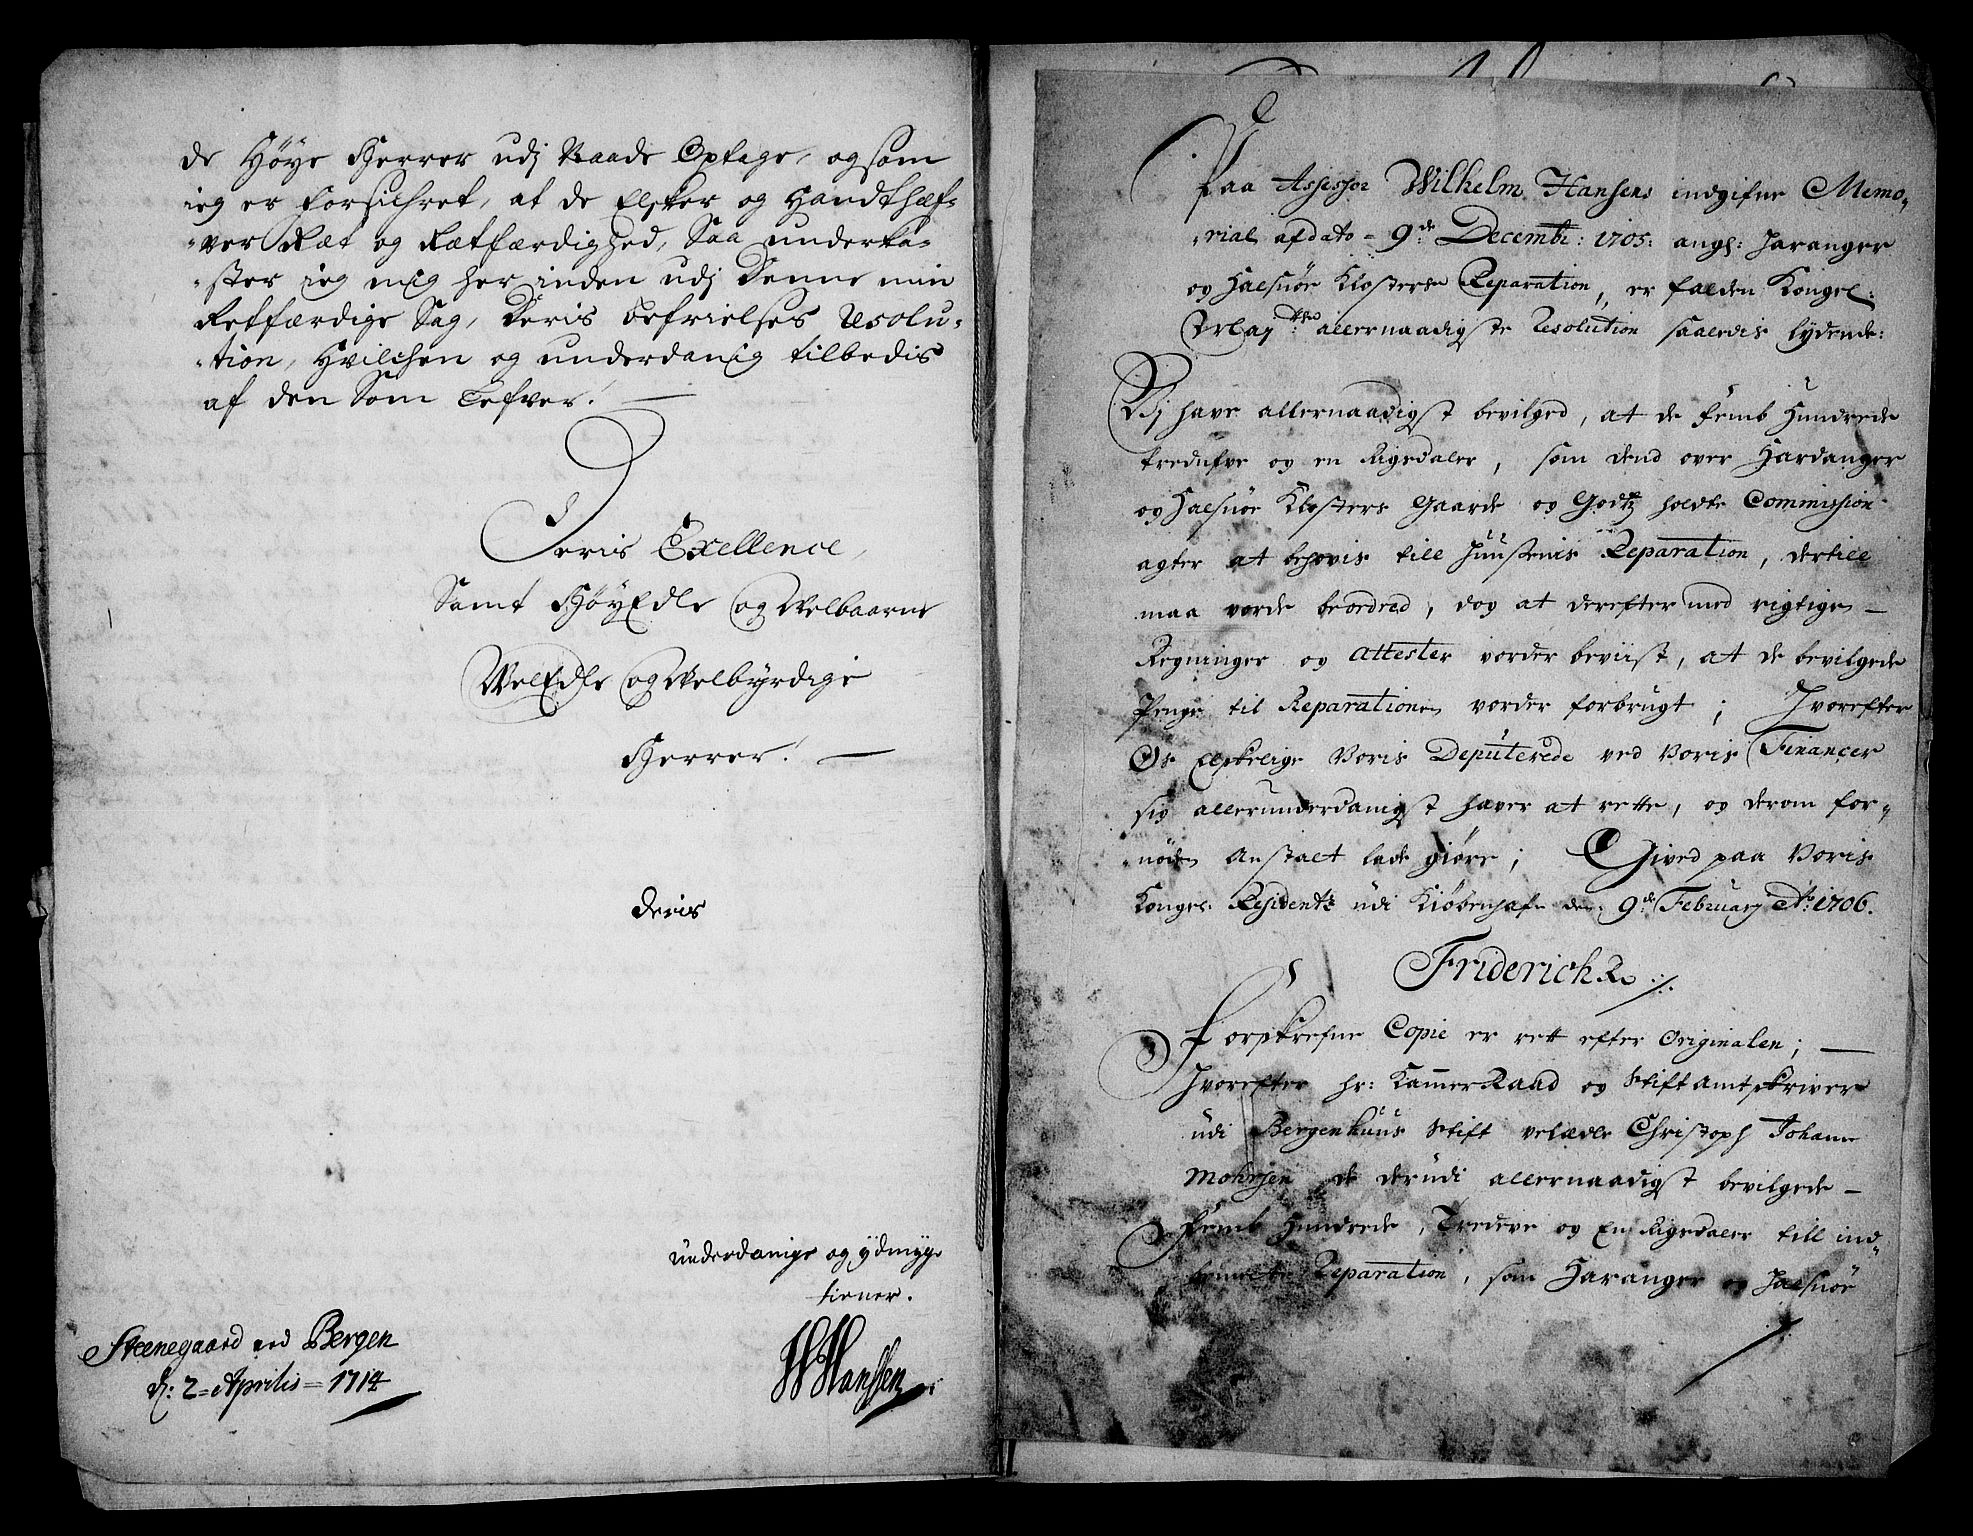 de Høye Herrer udj Naade Optage, og som
ieg er forsichret, at de Elsker og Handthæf-
-ver Ræt og Rætfærdighed, Saa underka-
-ster ieg mig her inden udj Denne min
Retfærdige Sag, Deris befrielses Resolu-
-tion, Hvilchen og underdanig tilbedis
af den Som Lefver! —
Deris Exellence,
Samt HøyEdle og Welbaarne
WelEdle og Welbyrdige
Herrer! —
deris
underdanige og ydmyge
tiener.
WHanssen
Steenegaard ved Bergen
d: 2 = Aprilis = 1714
Paa Assessor Wilhelm Hansens indgifne Memo-
-rial af dato = 9de Decembr: 1705: ang: Haranger
og Halsnøe Klosters Reparation, er falden Kongel:
Mayts allernaadigste Resolution saaledis lydende:
Vj have allernaadigst bevilged, at de Femb Hundrede
tredufve og en Rigsdaler, som dend over Hardanger
og Halsnøe Klosters Gaarde og Godtz holdte Commission
agter at behøvis till Huusenis Reparation, dertill
maa vorde beordred, dog at derefter med rigtige —
Regninger og Attester vorder beviist, at de bevilgede
Penge til Reparationen vorder forbrugt; Hvorefter
Os Elskelige Voris Deputerede ved Voris Financer
sig allerunderdanigst haver at rette, og derom for-
-nøden Anstalt lade giøre; Gived paa Voris
Kongel: Residentz udi Kiøbenhafn den: 9de February Ao 1706.
Friderich R
Forskrefne Copie er rett efter Originalen; —
Hvorefter hr: Kammer Raad og Stift Amtskriver
udi Bergenhuus Stift velædle Christoph Johann
Mohrsen de derudi allernaadigst bevilgede —
Femb Hundrede, Tredeve og En Rigsdaler till ind-
Reparation, som Haranger og Halsnøe